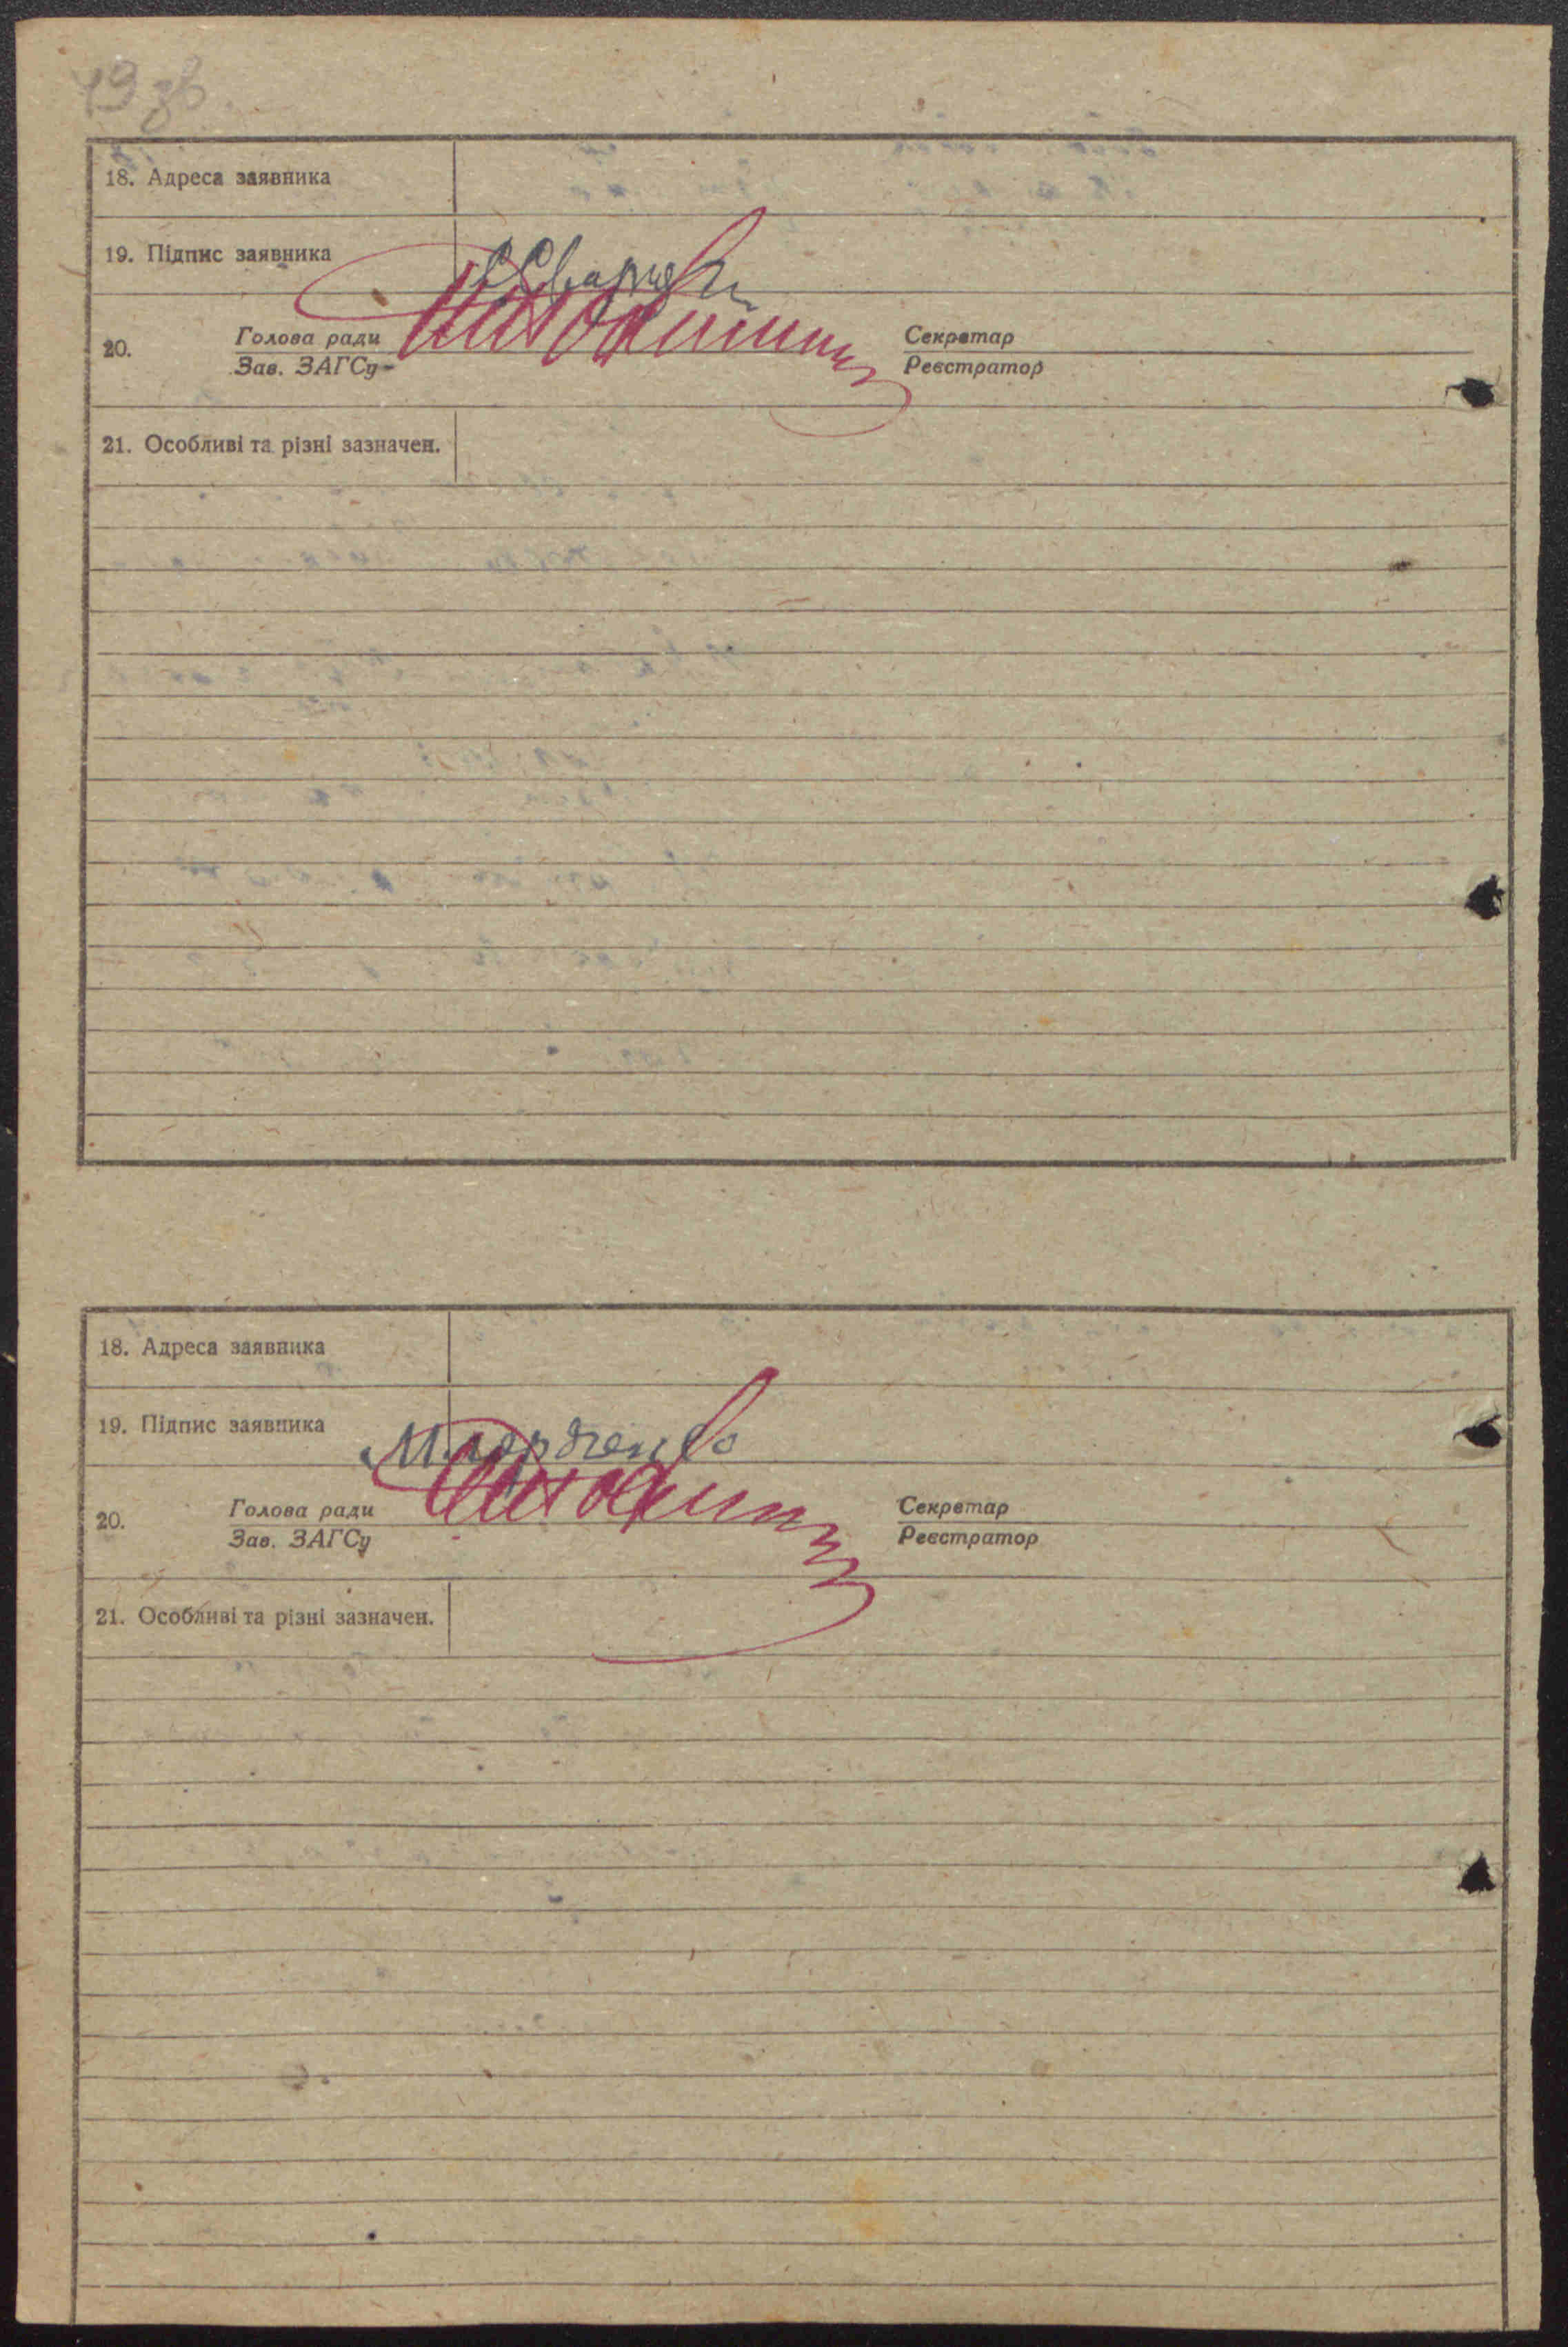 19 зв
18. Адреса заявника
19. Підпис заявника
20. Голова ради Секретар
Зав. ЗАГСу Реєстратор
21. Особливі та різні зазначен.
18. Адреса заявника
19. Підпис заявника
20. Голова ради Секретар
Зав. ЗАГСу Реєстратор
21. Особливі та різні зазначен.